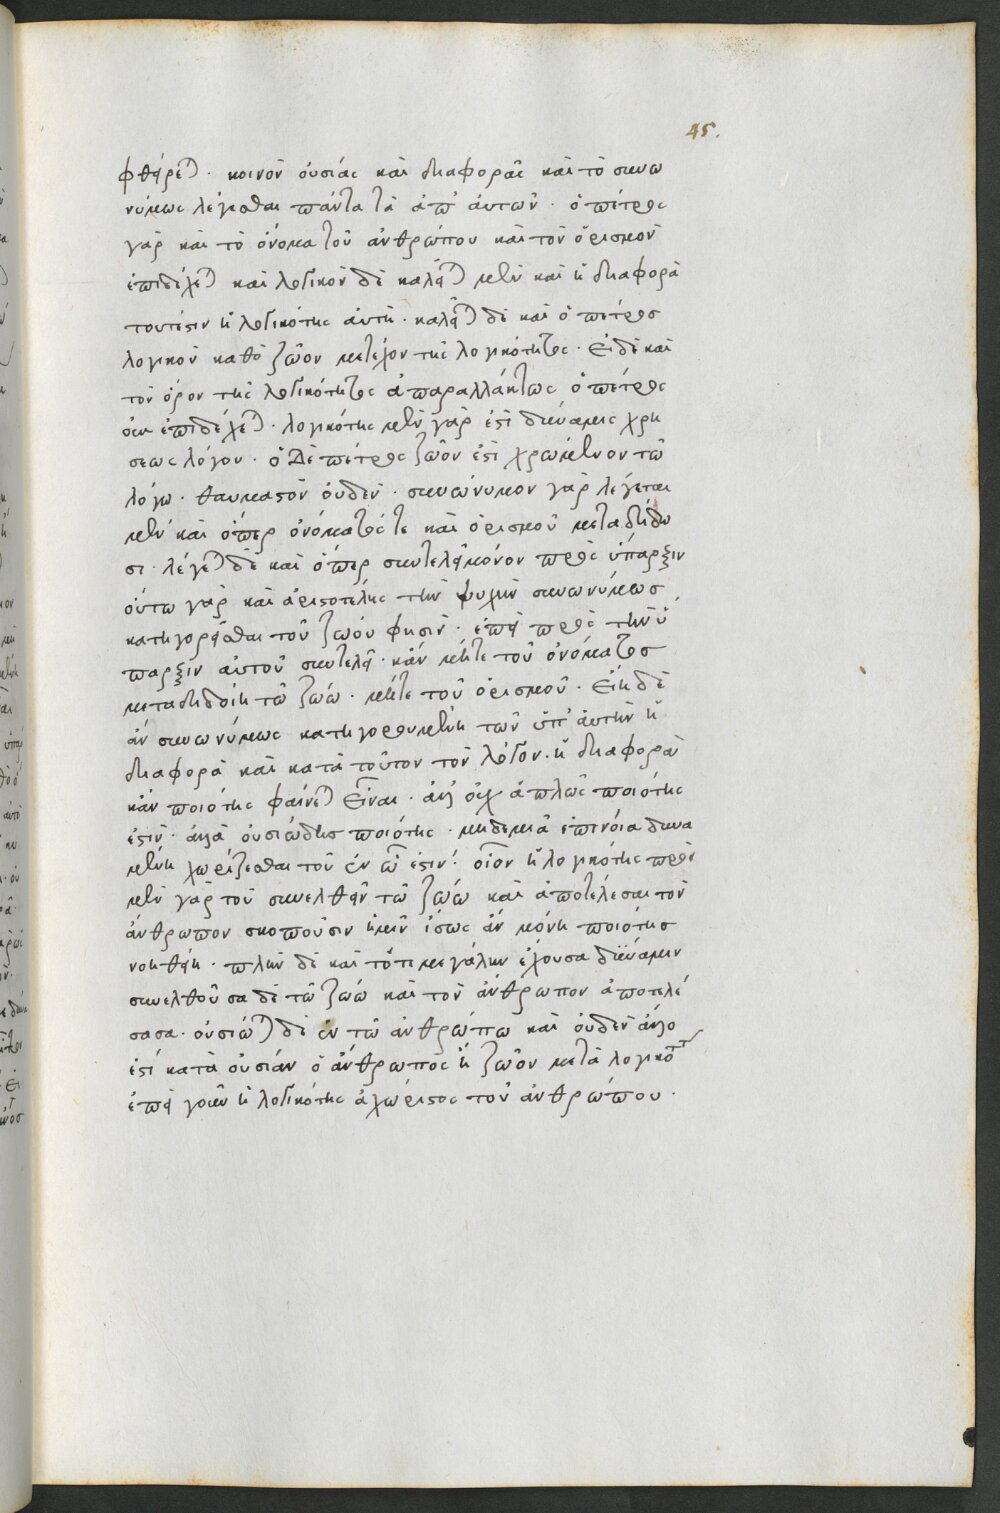 45.
φθείρε). κοινὸν οὐσίας καὶ διαφορᾶς καὶ τὸ συνω
νύμως λέγεσθαι πάντα τὰ ἀπ' αὐτῶν. ὁ πέτρος
γὰρ καὶ τὸ ὄνομα τοῦ ἀνθρώπου καὶ τὸν ὁρισμὸν
ἐπιδέχε) καὶ λογικὸν δὲ καλεῖ) μὲν καὶ ἡ διαφορὰ
τουτέστιν ἡ λογικότης αὐτὴ. καλεῖ) δὲ καὶ ὁ πέτρος
λογικὸν καθὸ ζῶον μετέχον τῆς λογικότητος. εἰ δὲ καὶ
τὸν ὅρον τῆς λογικότητος ἀπαραλλάκτως ὁ πέτρος
οὐκ ἐπιδέχε). λογικότης μὲν γὰρ ἐστὶ δύναμις χρή
σεως λόγου. ὁ δὲ πέτρος ζῶον ἐστὶ χρώμενον τῶ
λόγω. θαυμαστὸν οὐδὲν. συνώνυμον γὰρ λέγεται
μὲν καὶ ὅπερ ὀνόματός τε καὶ ὁρισμοῦ μεταδίδω
σι. λέγε) δὲ καὶ ὅπερ συντελεῖ μόνον πρὸς ὕπαρξιν
οὕτω γὰρ καὶ ἀριστοτέλης τὴν ψυχὴν συνωνύμως
κατηγορεῖσθαι τοῦ ζώου φησὶν. ἐπεὶ πρὸς τὴν ὕ
παρξιν αὐτοῦ συντελεῖ. κἂν μήτε τοῦ ὀνόματος
μεταδιδοίη τῶ ζώω. μήτε τοῦ ὁρισμοῦ. εἴη δὲ
ἂν συνωνύμως κατηγορουμένη τῶν ὑπ' αὐτὴν ἡ
διαφορὰ καὶ κατὰ τοῦτον τὸν λόγον. ἡ διαφορὰ
κἂν ποιότης φαίνε) εἶναι. ἀλλ' οὐχ ἁπλῶς ποιότης
ἐστὶν. ἀλλὰ οὐσιώδης ποιότης. μηδεμιᾶ ἐπινοία δυνα
μένη χωρίζεσθαι τοῦ ἐν ᾧ ἐστὶν: οἷον ἡ λογικότης πρὸ
μὲν γὰρ τοῦ συνελθεῖν τῶ ζώω καὶ ἀποτελέσαι τὸν
ἄνθρωπον σκοποῦσιν ἡμῖν ἴσως ἂν μόνη ποιότης
νοηθείη. πλὴν δὲ καὶ τότε μεγάλην ἔχουσα δύναμιν
συνελθοῦσα δὲ τῶ ζώω καὶ τὸν ἄνθρωπον ἀποτελέ
σασα. οὐσιῶ) δὲ ἐν τῶ ἀνθρώπω καὶ οὐδὲν ἄλλο
ἐστὶ κατὰ οὐσίαν ὁ ἄνθρωπος ἢ ζῶον μετὰ λογικότητος
ἐπεὶ γοῦν ἡ λογικότης ἀχώριστος τοῦ ἀνθρώπου.